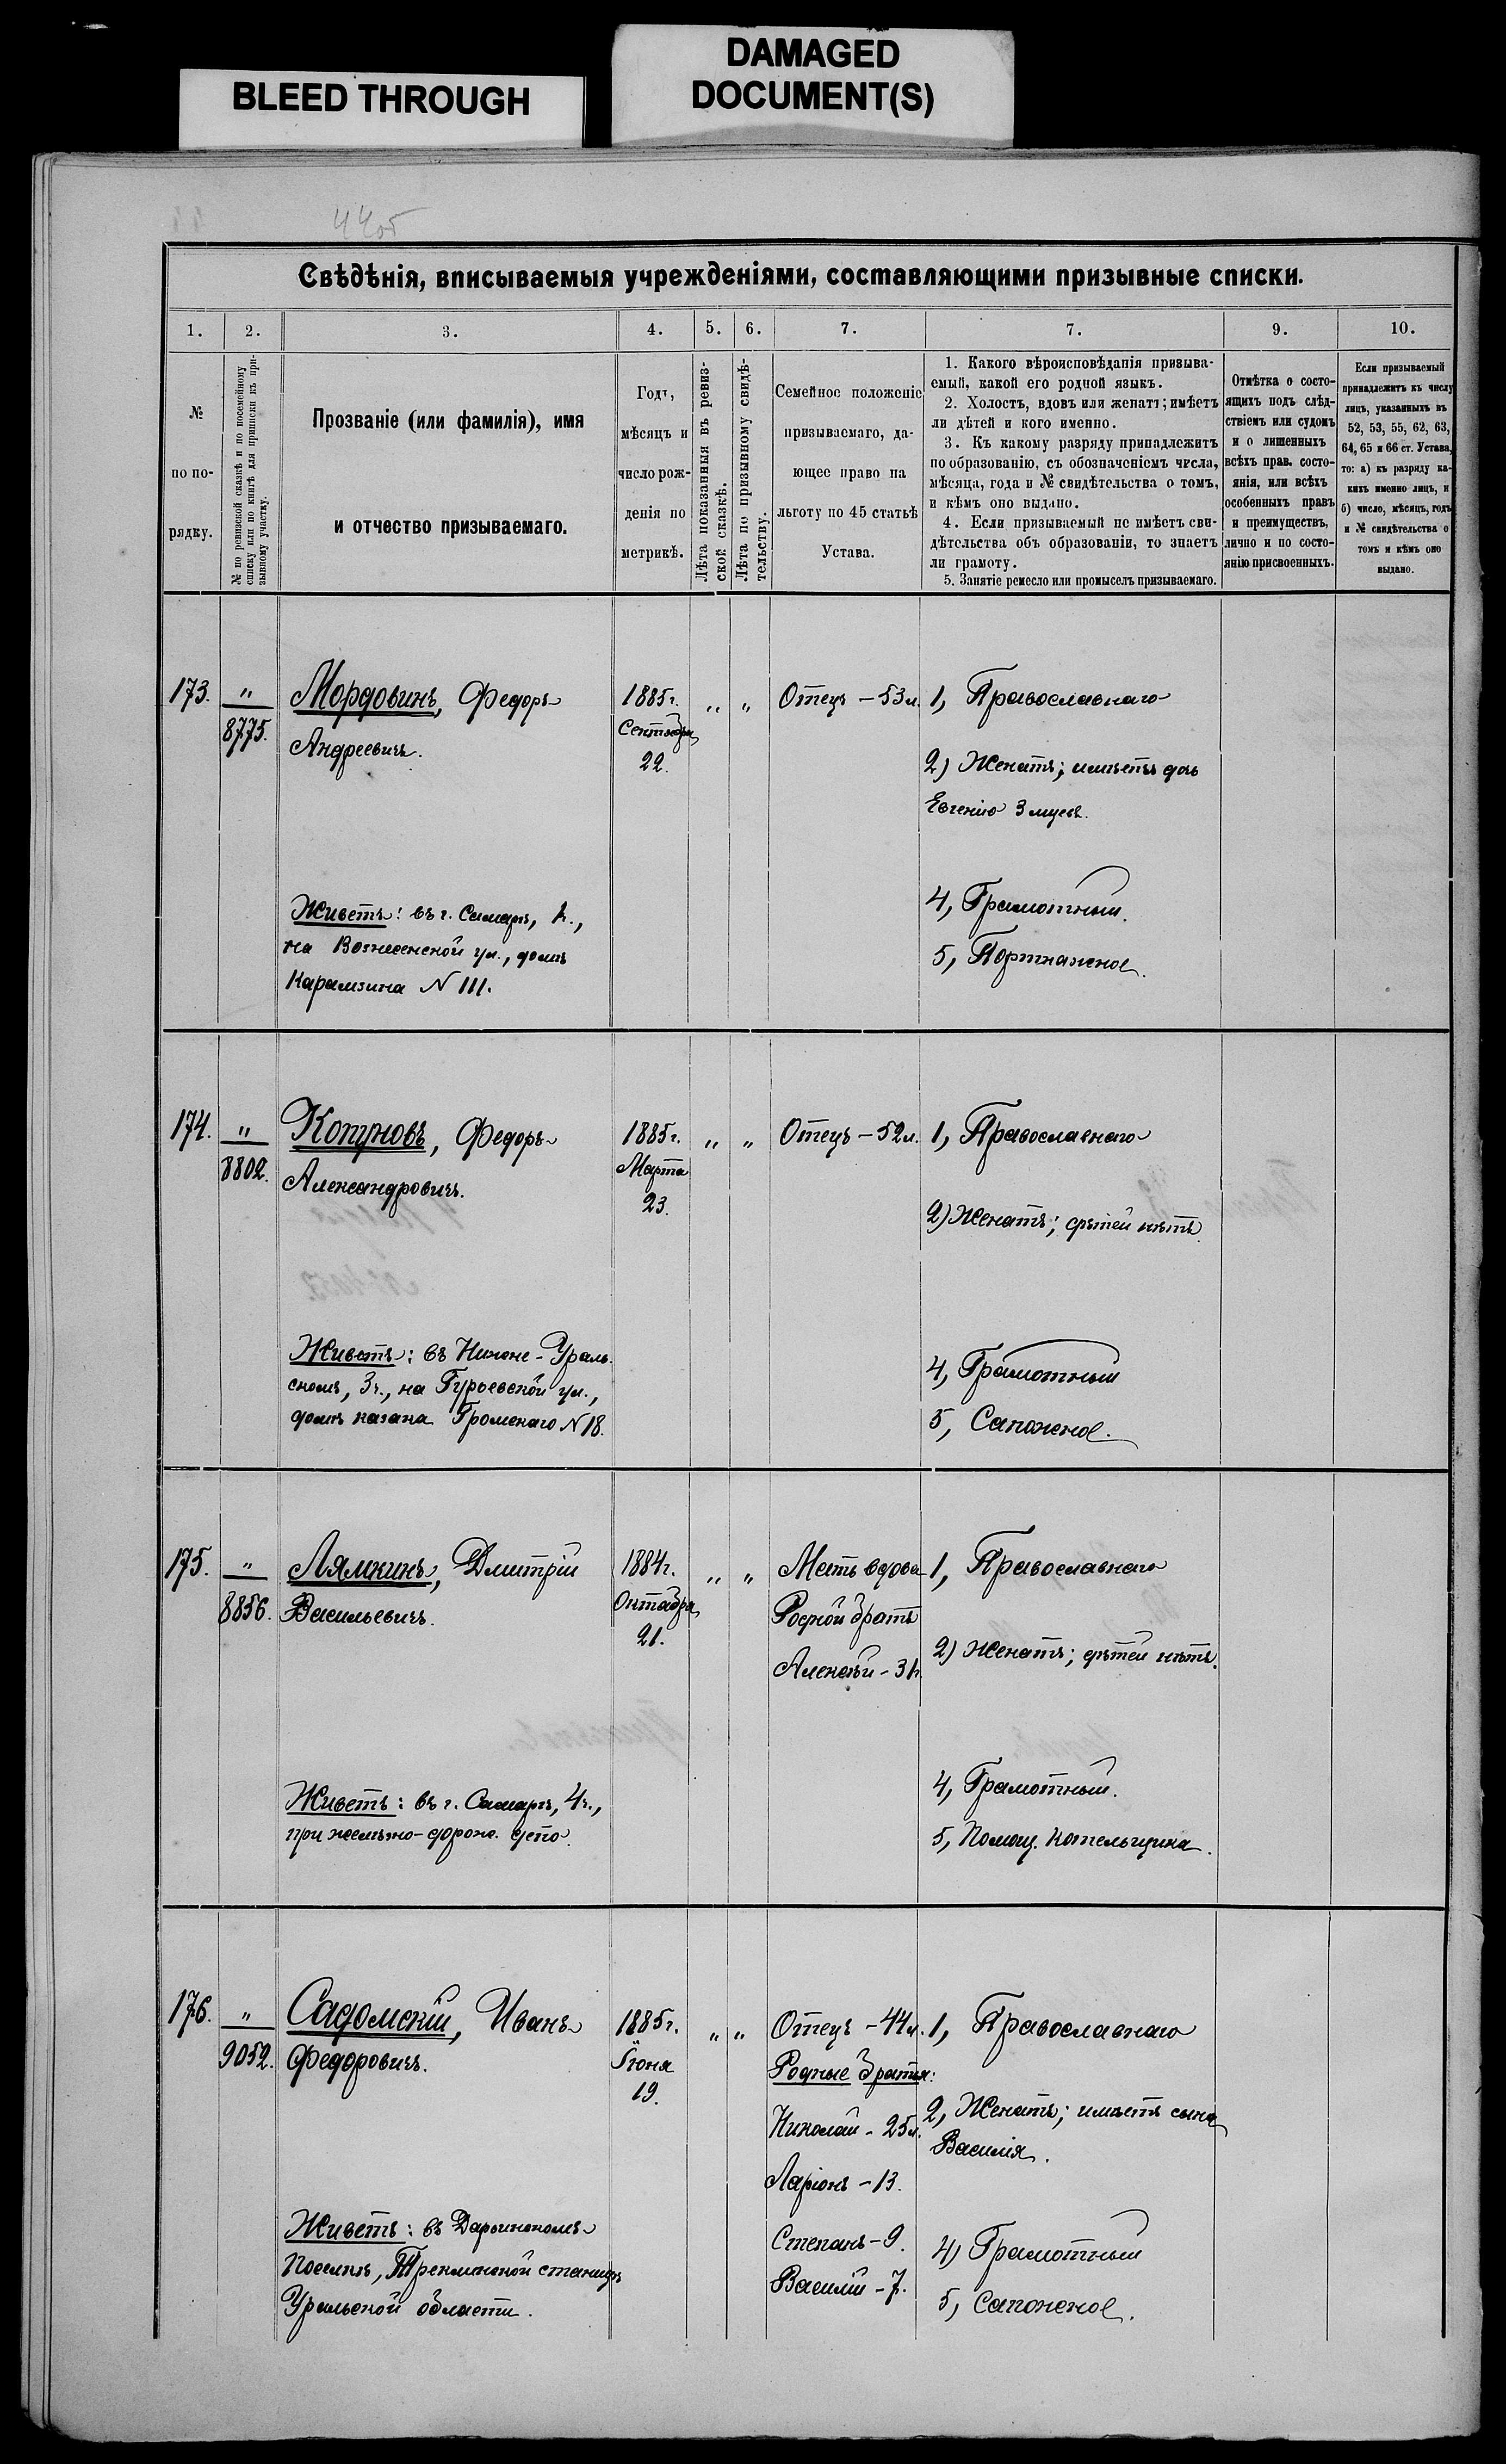 BLEED THROUGH
DAMAGED
DOCUMENT(S)
44об
Свѣдѣнія, вписываемыя учрежденіями, составляющими призывные списки.
1. 2. 3. 4. 5. 6. 7. 7. 9. 10.
№
по по-
рядку.
№ по ревизской сказкѣ и по посемейному
списку или по книгѣ для приписки къ при-
зывному участку.
Прозваніе (или фамилія), имя
и отчество призываемаго.
Годъ,
мѣсяцъ и
число рож-
денія по
метрикѣ.
Лѣта показанныя въ ревиз-
ской сказкѣ.
Лѣта по призывному свидѣ-
тельству.
Семейное положеніе
призываемаго, да-
ющее право на
льготу по 45 статьѣ
Устава.
1. Какого вѣроисповѣданія призыва-
емый, какой его родной языкъ.
2. Холостъ, вдовъ или женатъ; имѣетъ
ли дѣтей и кого именно.
3. Къ какому разряду принадлежитъ
по образованію, съ обозначеніемъ числа,
мѣсяца, года и № свидѣтельства о томъ,
и кѣмъ оно выдано.
4. Если призываемый не имѣетъ сви-
дѣтельства объ образованіи, то знаетъ
ли грамоту.
5. Занятіе ремесло или промыселъ призываемаго.
Отмѣтка о состо-
ящихъ подъ слѣд-
ствіемъ или судомъ
и о лишенныхъ
всѣхъ прав. состо-
янія, или всѣхъ
особенныхъ правъ
и преимуществъ,
лично и по состо-
янію присвоенныхъ.
Если призываемый
принадлежитъ къ числу
лицъ, указанныхъ въ
52, 53, 55, 62, 63,
64, 65 и 66 ст. Устава,
то: а) къ разряду ка-
кихъ именно лицъ, и
б) число, мѣсяцъ, годъ
и № свидѣтельства о
томъ и кѣмъ оно
выдано.
173. " Мордовинъ, Федоръ 1885г. " " Отецъ – 53 л. 1, Православнаго
8775. Андреевичъ. Сентября
22. 2) Женатъ; имѣетъ дочь
Евгенію 3 мцевъ.
Живетъ: въ г. Самарѣ,
на Вознесенской ул., домъ
Карамзина N 111.
4, Грамотный.
5, Портняжное.
174. " Копуновъ, Федоръ 1885г. " " Отецъ – 52 л. 1, Православнаго
8802. Александровичъ. Марта
23. 2) Женатъ; дѣтей нѣтъ.
Живетъ: въ Нижне-Ураль-
скомъ, 3ч., на Гурьевской ул.,
домъ N 18.
4, Грамотный
5, Сапожное.
175. " Лямкинъ, Дмитрій 1884г. " " Мать вдова 1, Православнаго
8856. Васильевичъ. Октября Родной братъ
21. Алексѣй – 31. 2) Женатъ; дѣтей нѣтъ.
Живетъ: въ г. Самарѣ, 4ч.,
при желѣзно-дорож. депо.
4, Грамотный.
5, Помощ. котельщика.
176. " Садомскій, Иванъ 1885г. " " Отецъ – 44 л. 1, Православнаго
9052. Федоровичъ. Іюня Родные братья:
19. Николай – 25 л. 2, Женатъ; имѣетъ сына
Василія.
Ларіонъ – 13.
Степанъ – 9.
Василій – 7.
Живетъ: въ Дарьинскомъ
поселкѣ, Трекинской станицы
Уральской области.
4) Грамотный
5, Сапожное.